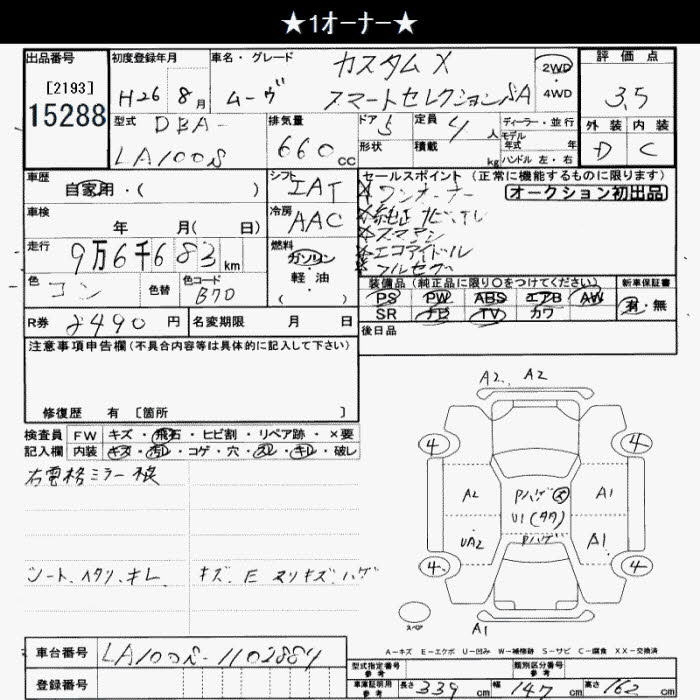 ★1オーナー★
出品番号 初度登録年月 車名・グレード カスタムX 2WD・4WD 評価点
[2193] H26年8月 ムーヴ スマートセレクションSA 3.5
15288 型式 DBA- 排気量 ドア 5 定員 4人 ディーラー・並行 外装 内装
LA100S 660cc 形状 積載 kg モデル年式 年 D C
ハンドル 左・右
車歴 シフト セールスポイント(正常に機能するものに限ります)
自家用・( ) IAT ワンオーナー オークション初出品
車検 冷房 純正ナビTEL
年 月( 日) AAC スマアシ
走行 燃料 エコアイドル
9万6千683km ガソリン・軽油 フルセグ
色 色替 色コード ( ) 装備品(純正品に限り○をつけてください) 新車保証書
コン B70 PS PW ABS エアB AW 有・無
SR ナビ TV カワ
R券 8490円 名変期限 月 日 後日品
注意事項申告欄(不具合内容等は具体的に記入して下さい)
修復歴 有 [箇所 ]
A2, A2
検査員 FW キズ・飛石・ヒビ割・リペア跡・×要
記入欄 内装 キズ・汚レ・コゲ・穴・スレ・キレ・破レ
4 4
右電格ミラー
A2 Pハゲ A1
U1(タタ)
UA2 Pハゲ A1
4 4
シート、ヘタリ、キレ キズ、E ヌリキズ、ハゲ
スペア
A1
A-キズ E-エクボ U-凹み W-補修跡 S-サビ C-腐食 XX-交換済
車台番号 LA100S-1102884
型式指定番号 参考 類別区分番号 参考
登録番号 車庫証明用 参考 長さ 339cm 幅 147cm 高さ 162cm